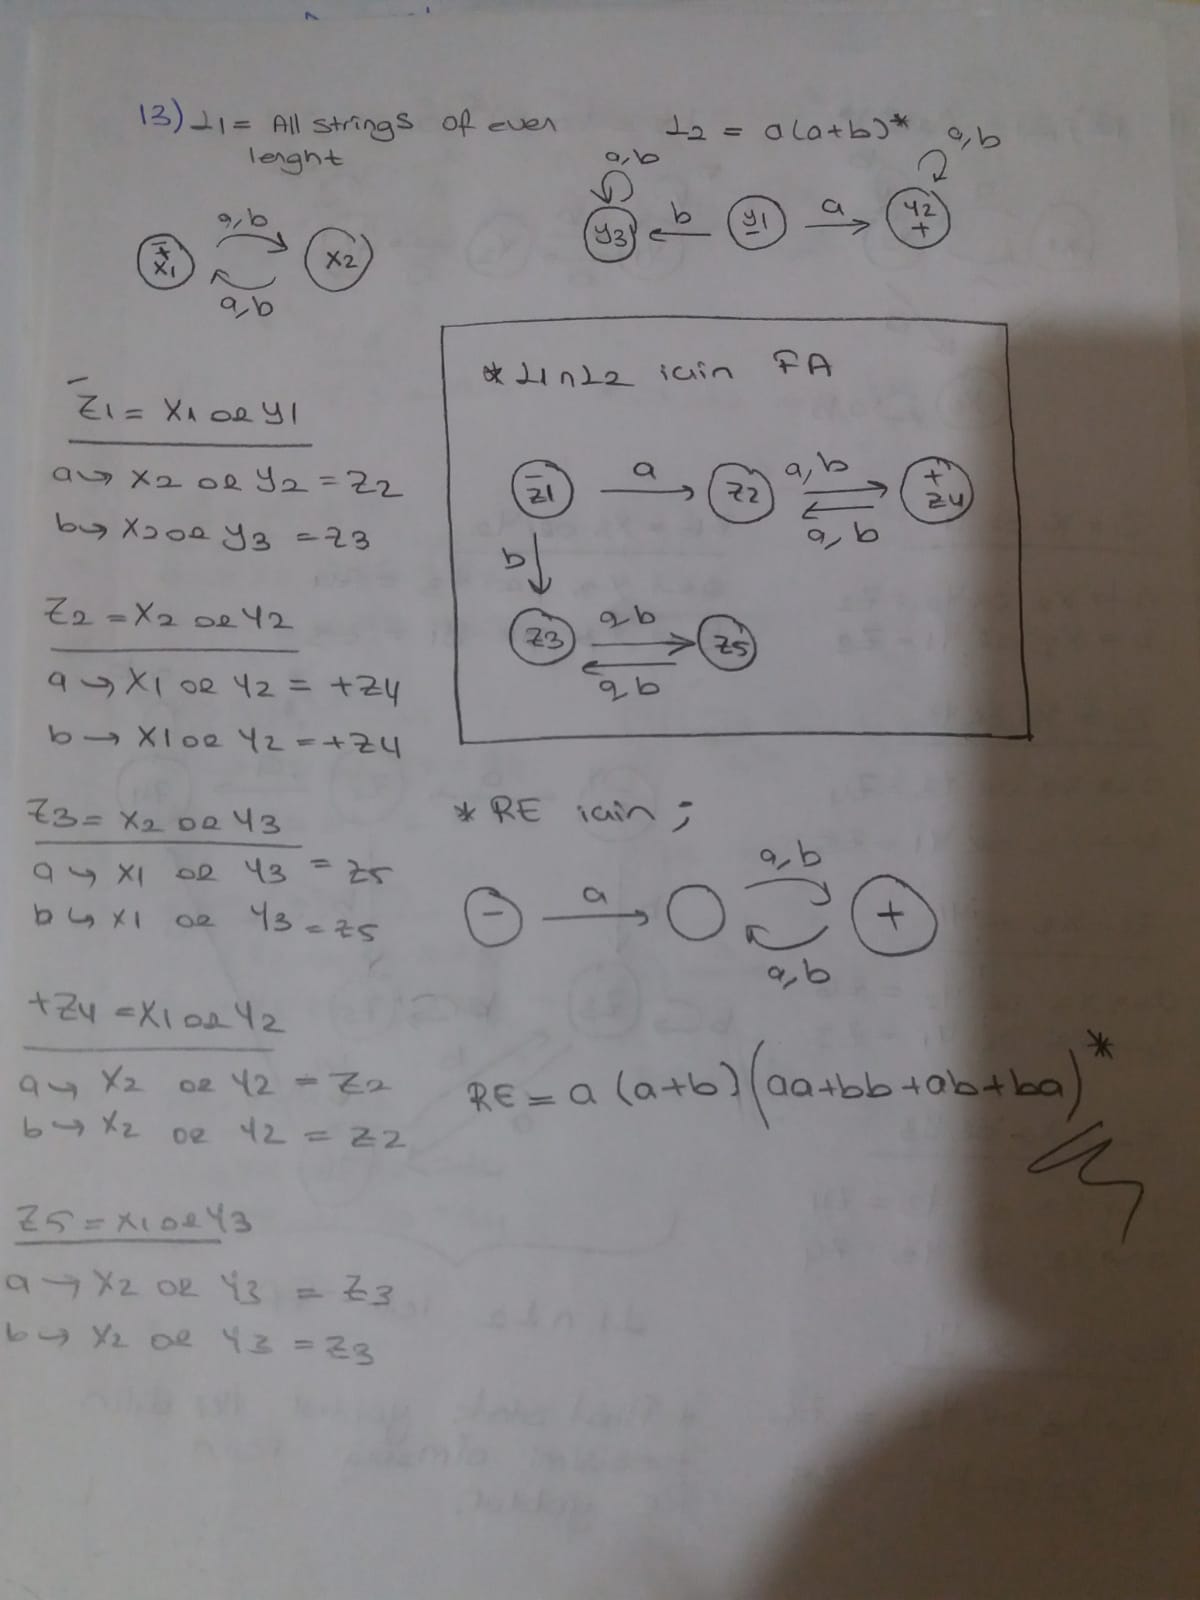 13) L1 = All strings of even
lenght
L2 = a(a+b)*
a,b
a,b
∓
x1
a,b
a,b
x2
y3
b
y1
-
a
y2
+
-
z1 = x1 or y1
a→ x2 or y2 = z2
b→ x2 or y3 = z3
z2 = x2 or y2
a → x1 or y2 = +z4
b → x1 or y2 = +z4
z3 = x2 or y3
a → x1 or y3 = z5
b → x1 or y3 = z5
+z4 = x1 or y2
a → x2 or y2 = z2
b → x2 or y2 = z2
z5 = x1 or y3
a → x2 or y3 = z3
b → x2 or y3 = z3
* L1∩L2 için FA
-
z1
a
z2
a,b
a,b
+
z4
b
z3
a b
a b
z5
* RE için ;
-
a
a,b
a,b
+
RE = a (a+b) (aa+bb+ab+ba)*